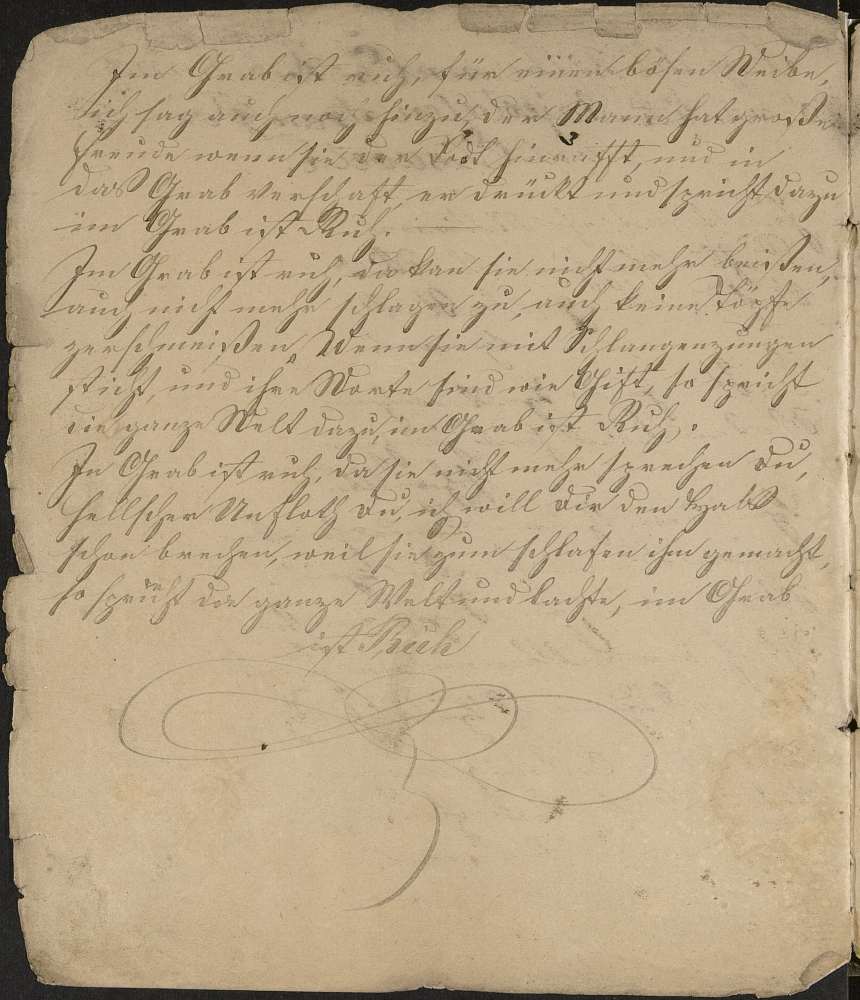 Im Grab ist ruh, für einen bösen Weibe,
ich sag auch noch hinzu, der Mann hat große
freude wenn sie der Todt hinrafft, und in
das Grab verschaft, er drückt und spricht dazu
im Grab ist Ruh.
Im Grab ist ruh, da kan sie nicht mehr beißen,
auch nicht mehr schlagen zu, auch keine Töpfe
zerschmeißen, Wenn sie mit Schlangenzungen
sticht, und ihre Worte sind wie Gift, so spricht
die ganze Welt dazu, im Grab ist Ruh.
In Grab ist ruh, da sie nicht mehr sprechen Du,
hellscher Unfloth Du, ich will dir den Hals
schon brechen, weil sie zum schlafen ihn gemacht,
so spricht die ganze Welt und lachte, im Grab
ist Ruh